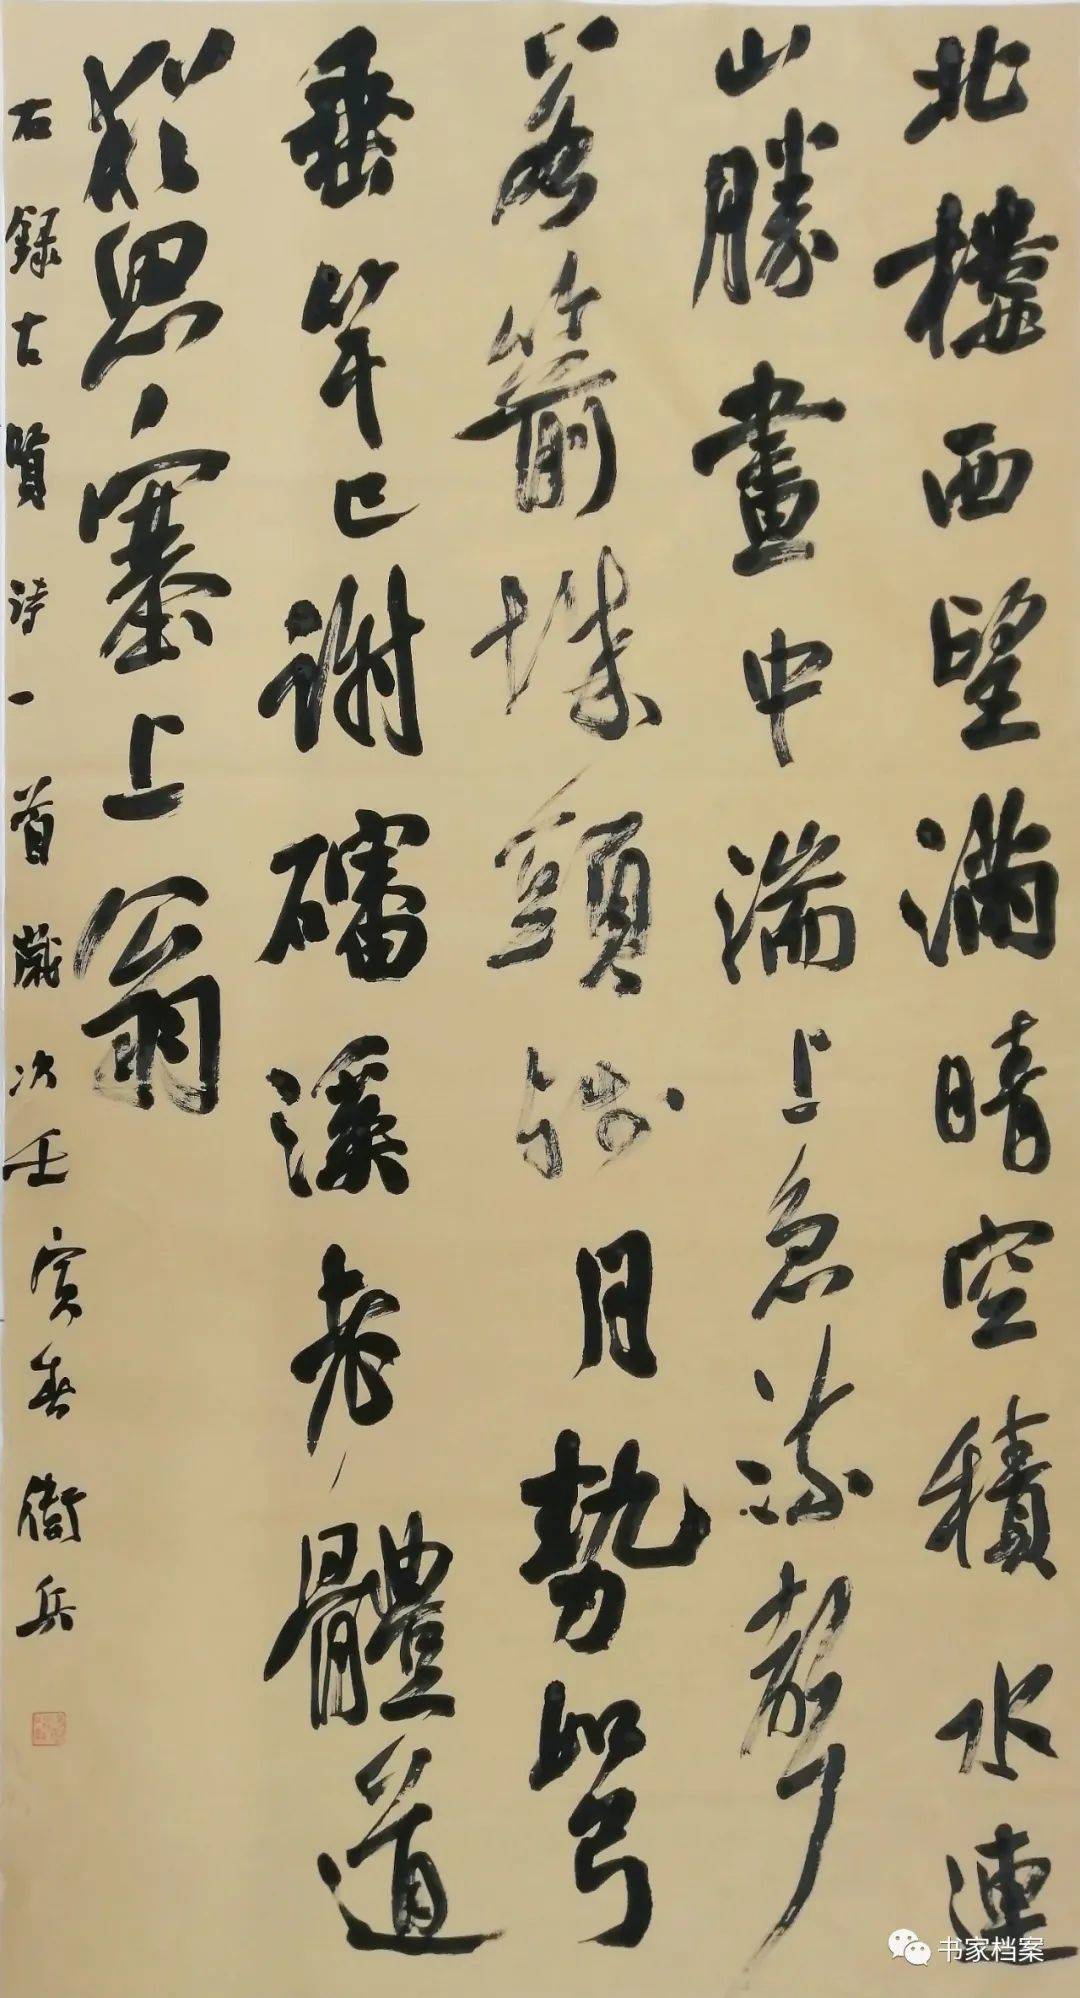 北樓西望滿晴空積水連
山勝畫中湍上急流聲
若箭城頭殘月勢如弓
垂竿已謝磻溪老體道
猶思塞上翁
右録古賢詩一首歲次壬寅春衛兵
书家档案